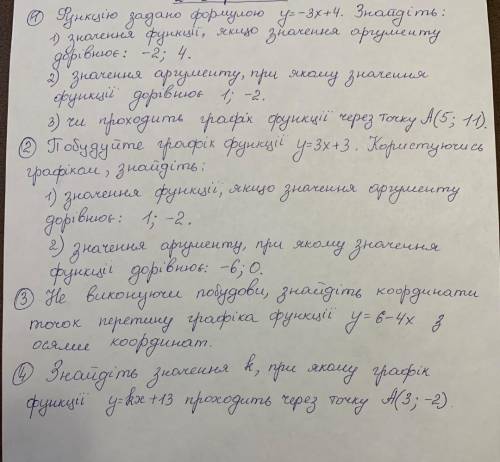 ① Функцію задано формулою y=-3x+4. Знайдіть:
1) значення функції, якщо значення аргументу
дорівнює: -2; 4.
2) значення аргументу, при якому значення
функції дорівнює 1; -2.
3) чи проходить графік функції через точку A(5; 11).
② Побудуйте графік функції y=3x+3. Користуючись
графіком, знайдіть:
1) значення функції, якщо значення аргументу
дорівнює: 1; -2.
2) значення аргументу, при якому значення
функції дорівнює: -6; 0.
③ Не виконуючи побудови, знайдіть координати
точок перетину графіка функції y=6-4x з
осями координат.
④ Знайдіть значення k, при якому графік
функції y=kx+13 проходить через точку A(3; -2).